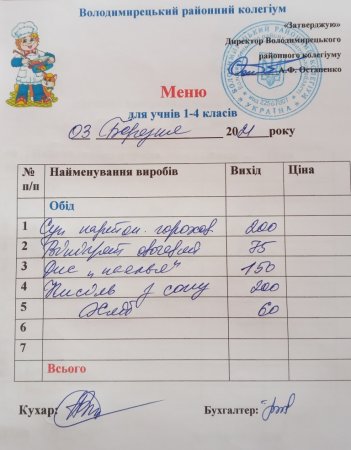 Володимирецький районний колегіум
«Затверджую»
Директор Володимирецького
районного колегіуму
А.Ф. Остапенко
Меню
для учнів 1-4 класів
03 Березня 2021 року
№ п/п Найменування виробів Вихід Ціна
Обід
1 Суп картоп. горохов. 200
2 Вінігрет овочевий 75
3 Рис 150
4 Кисіль з соку 200
5 Хліб 60
6
7
Всього
Кухар:
Бухгалтер: